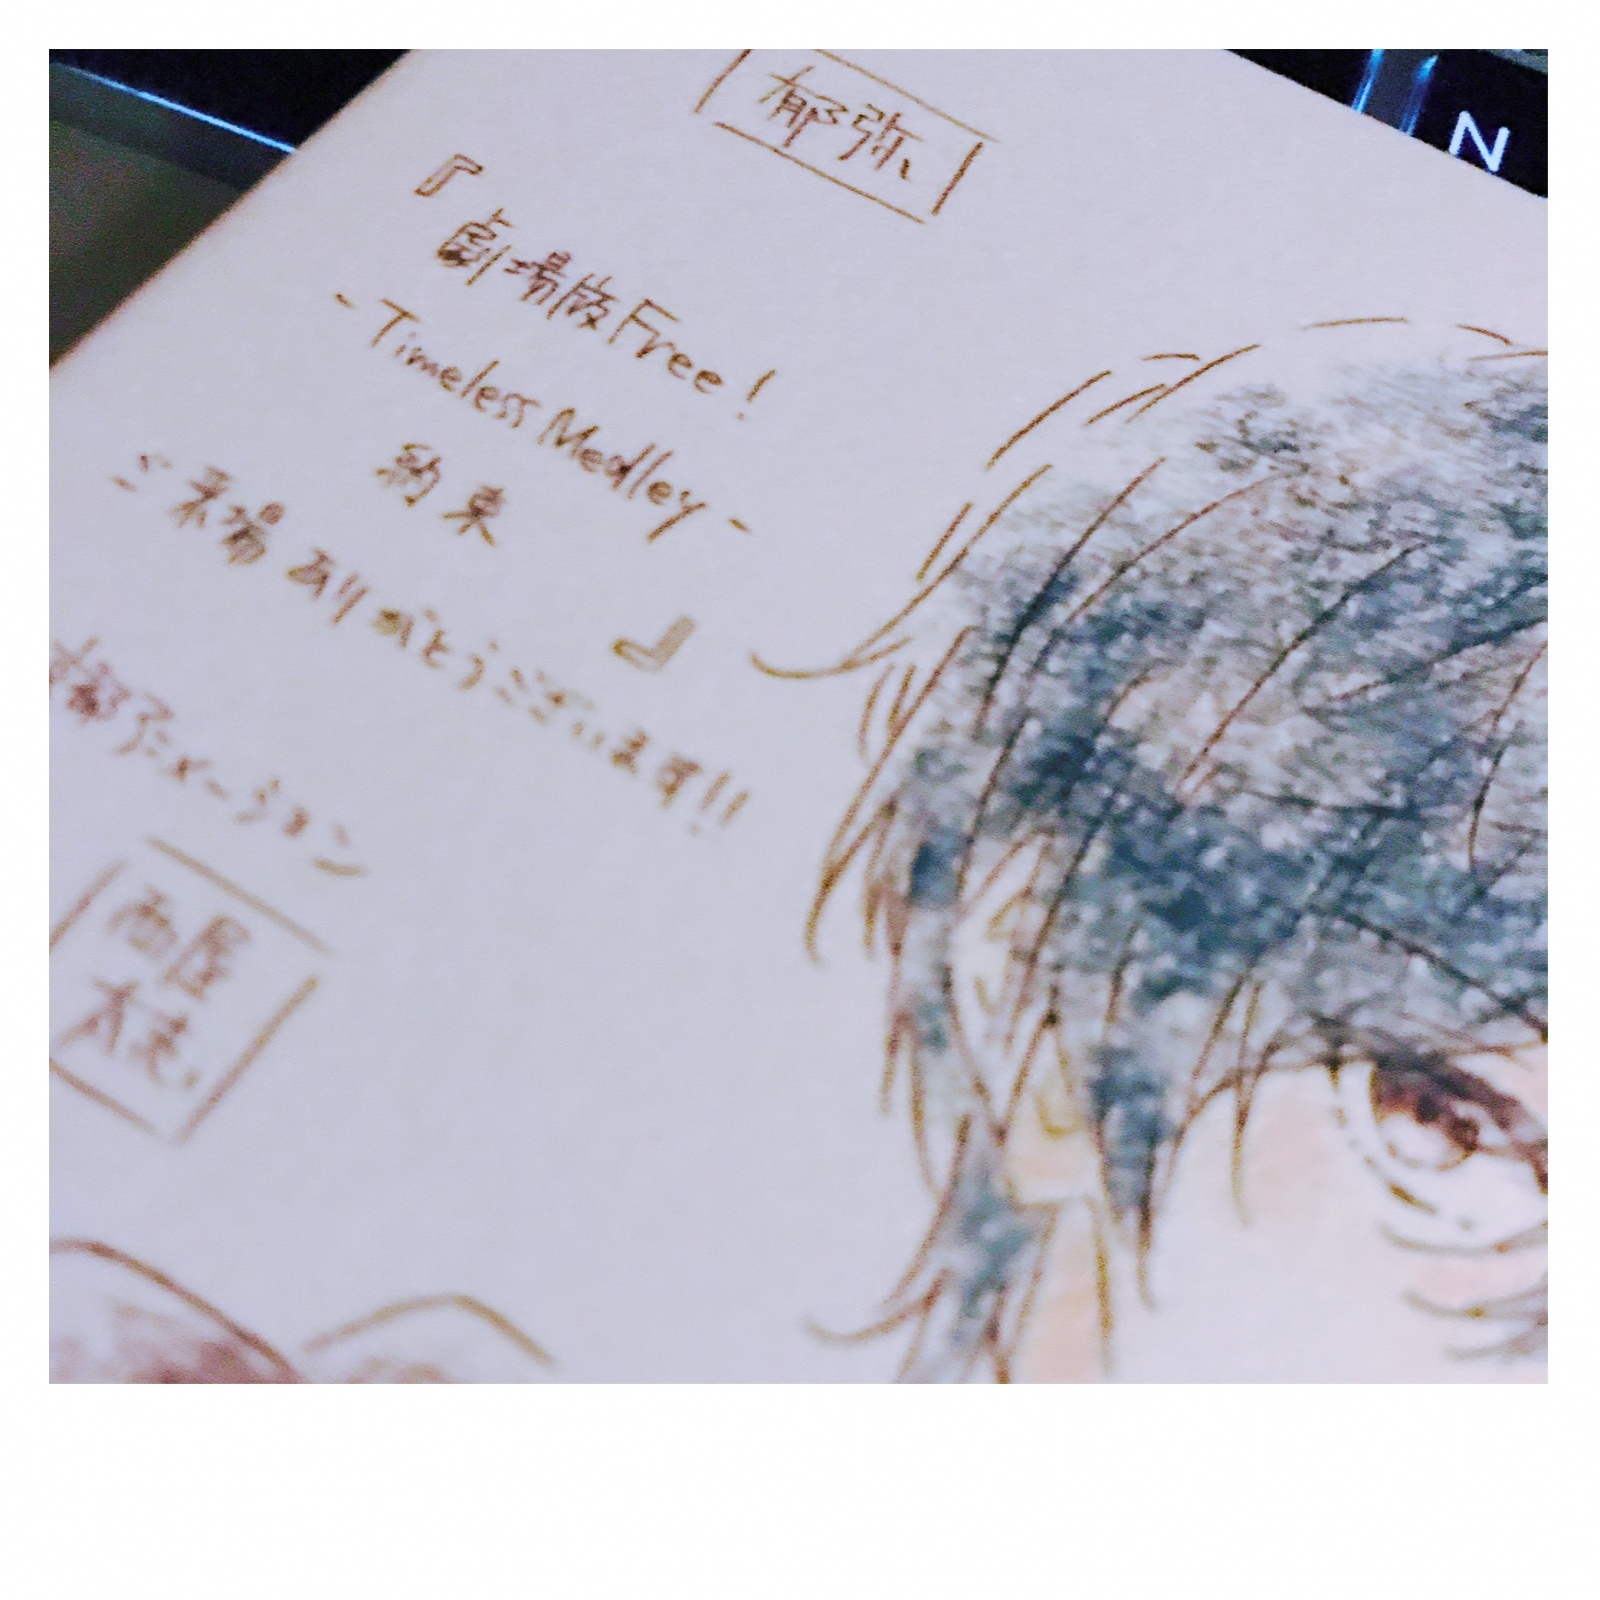 郁弥
『
劇場版Free!
-Timeless Medley-
約束
』
ご来場ありがとうございます!!
京都アニメーション
西屋
太志
N